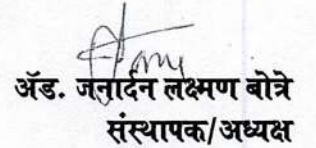 ॲड. जनार्दन लक्ष्मण बोत्रे
संस्थापक/अध्यक्ष